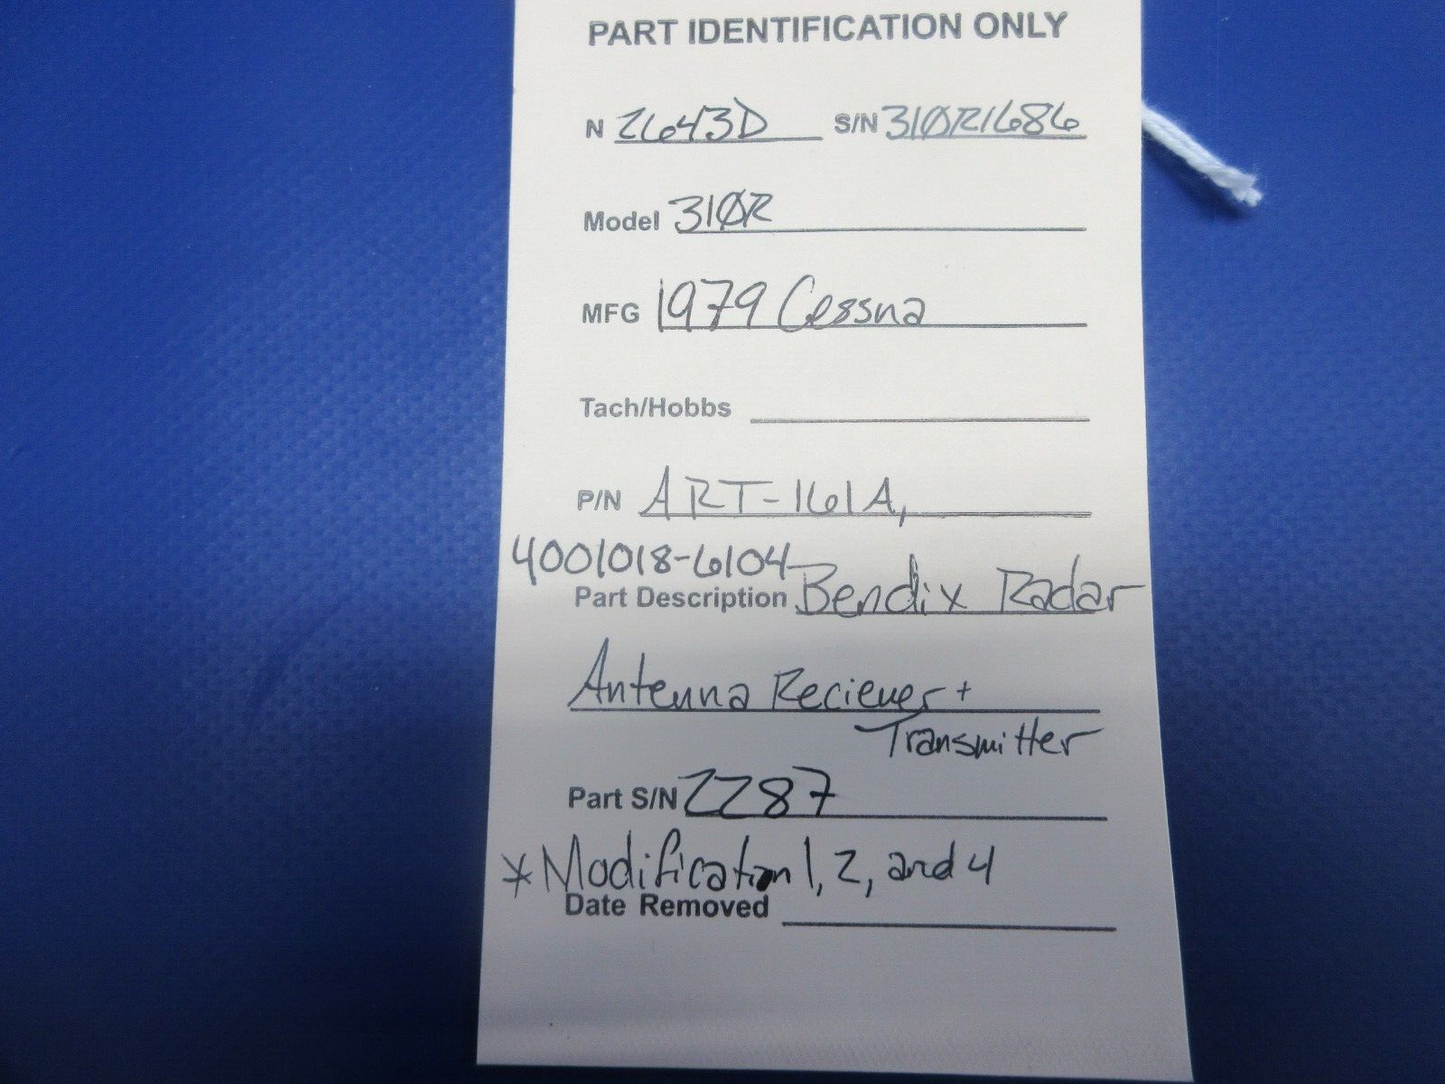 PART IDENTIFICATION ONLY
N 2643D S/N 310R1686
Model 310R
MFG 1979 Cessna
Tach/Hobbs
P/N ART-161A,
4001018-6104
Part Description Bendix Radar
Antenna Reciever +
Transmitter
Part S/N 2287
* Modification 1, 2, and 4
Date Removed